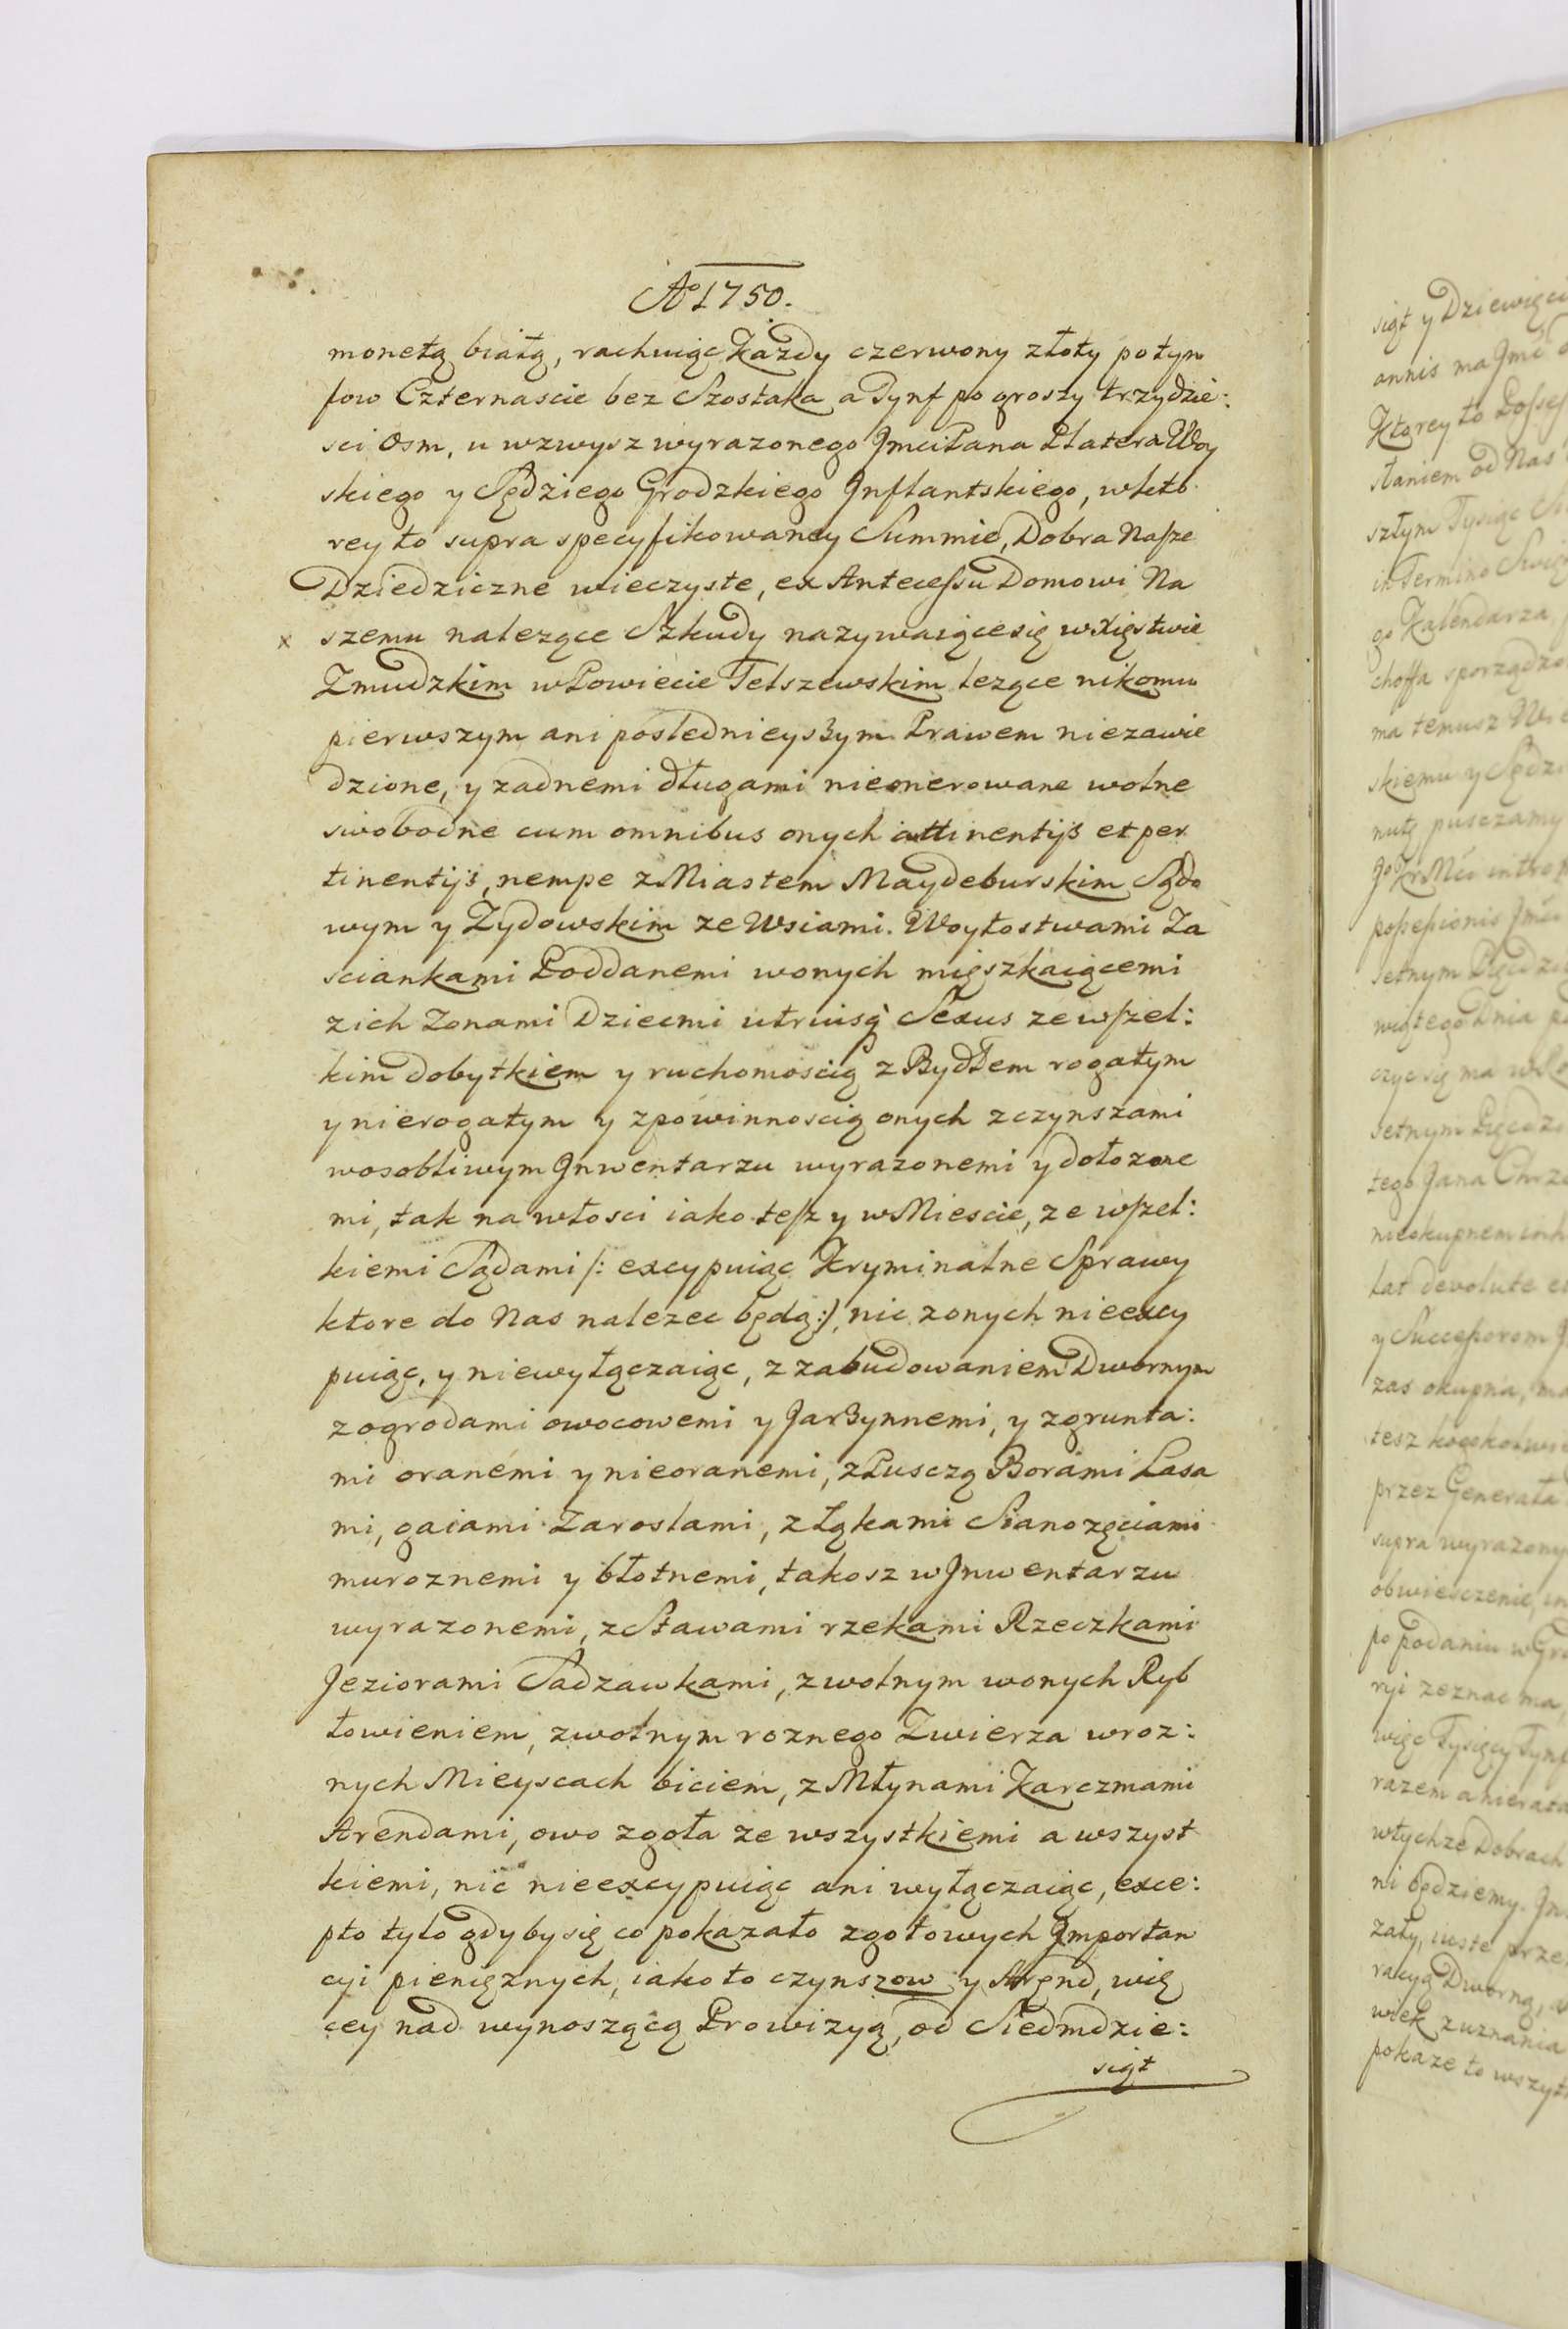 Aº 1750.
monetą białą, rachuiąc każdy czerwony złoty po tyn
fow Czternascie bez Szostaka a Tynf po groszy trzydzie:
sci Osm, u wzwysz wyrazonego Jmci Pana Platera Woy
skiego y Sędziego Grodzkiego Jnflantskiego, w kto
rey to supra specyfikowaney Summie, Dobra Nasze
Dziedziczne wieczyste, ex Antecessu Domowi Na
x szemu nalezące Szkudy nazywaiące się w Xięstwie
Zmudzkim w Powiecie Telszewskim lezące nikomu
pierwszym ani poslednieyszym Prawem niezawie
dzione, y zadnemi długami nieonerowane wolne
swobodne cum omnibus onych attinentijs et per
tinentijs, nempe z Miastem Maydeburskim Sądo
wym y Zydowskim ze Wsiami. Woytostwami Za
sciankami Poddanemi w onych mięszkaiącemi
z ich Zonami Dziecmi utriusq Sexus ze wszel:
kim dobytkiem y ruchomoscią z Bydłem rogatym
y nierogatym y z powinnoscią onych z czynszami
w osobliwym Jnwentarzu wyrazonemi y dołozone
mi, tak na włosci iako tesz y w Miescie, ze wszel:
kiemi Sądami /: excypuiąc Kryminalne Sprawy
ktore do Nas nalezec będą :/, nic z onych nieexcy
puiąc, y niewyłączaiąc, z zabudowaniem Dwornym
z ogrodami owocowemi y Jarzynnemi, y z grunta:
mi oranemi y nieoranemi, z Pusczą Borami Lasa
mi, gaiami Zaroslami, z Łąkami Sianozęciami
muroznemi y błotnemi, takosz w Jnwentarzu
wyrazonemi, z Stawami rzekami Rzeczkami
Jeziorami Sadzawkami, z wolnym w onych Ryb
łowieniem, z wolnym roznego Zwierza w roz:
nych Mieyscach biciem, z Młynami Karczmami
Arendami, owo zgoła ze wszystkiemi a wszyst
kiemi, nic nieexcypuiąc ani wyłączaiąc, exce:
pto tylo gdyby się co pokazało z gotowych Jmportan
cyi pienięznych, iako to czynszow y Arend, wię
cey nad wynoszącą Prowizyą, od Siedmdzie:
siąt
siąt y Dziewięc
annis ma Jmc
Ktorey to Posses
słaniem od Nas
szłym Tysiąc
in Termino Swię
go Kalendarza
choffa sporządzo
ma temusz
skiemu y Sędzi
nutę pusczamy
possessionis Jmci
setnym Pięcdzie
wiątego Dnia
czyc się ma
setnym Pięcdzie
tego Jana Chrz
nieokupnem
lat devolute
y Successorom
zas okupna, ma
tesz kogokolwie
przez Generała
supra wyrazony
obwiesczenie
po podaniu w Gro
ryi zeznac ma,
więc Tysięcy Tynf
razem a nierata
w tychze Dobrach
ni będziemy. Jn
zały, iuste prze
racyą Dworną,
wiek z uznania
pokaze to wszyt